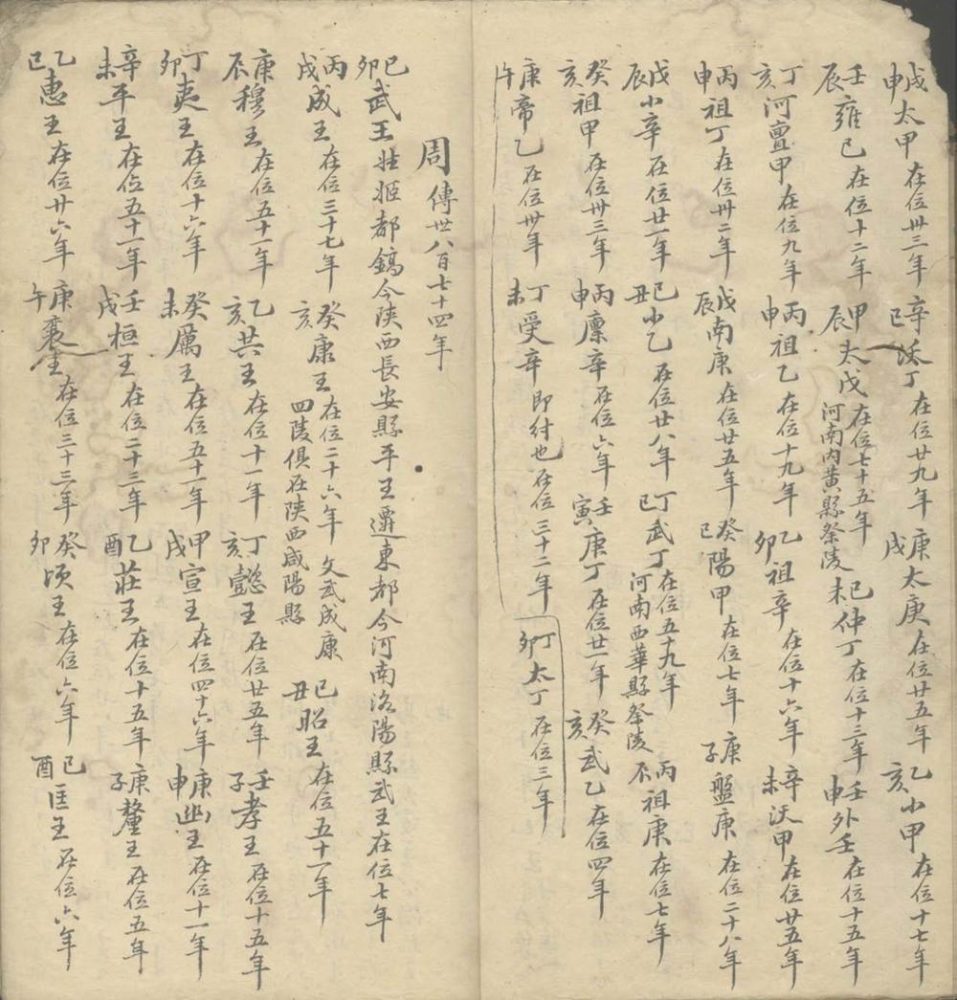 戊申太甲在位卅三年 辛巳沃丁在位廿九年 庚戌太庚在位廿五年 乙亥小甲在位十七年
壬辰雍己在位十二年 甲辰太戊在位七十五年河南內黃縣祭陵 己未仲丁在位十三年 壬申外壬在位十五年
丁亥河亶甲在位九年 丙申祖乙在位十九年 乙卯祖辛在位十六年 辛未沃甲在位廿五年
丙申祖丁在位卅二年 戊辰南庚在位廿五年 癸巳陽甲在位七年 庚子盤庚在位二十八年
戊辰小辛在位廿一年 己丑小乙在位廿八年 丁巳武丁在位五十九年河南西華縣祭陵 丙辰祖庚在位七年
癸亥祖甲在位卅三年 丙申廩辛在位六年 壬寅庚丁在位廿一年 癸亥武乙在位四年
庚午帝乙在位卅年 丁未受辛即紂也在位三十二年 丁卯太丁在位三年
周傳世八百七十四年
己卯武王姓姬都鎬今陝西長安縣平王遷東都今河南洛陽縣武王在位七年
丙戌成王在位三十七年 癸亥康王在位二十六年 文武成康四陵俱在陝西咸陽縣 己丑昭王在位五十一年
庚辰穆王在位五十一年 乙亥共王在位十一年 丁亥懿王在位廿五年 壬子孝王在位十五年
丁卯夷王在位十六年 癸未厲王在位五十一年 甲戌宣王在位四十六年 庚申幽王在位十一年
辛未平王在位五十一年 壬戌桓王在位二十三年 乙酉莊王在位十五年 庚子釐王在位五年
乙巳惠王在位廿六年 庚午襄王在位三十三年 癸卯頃王在位六年 己酉匡王在位六年